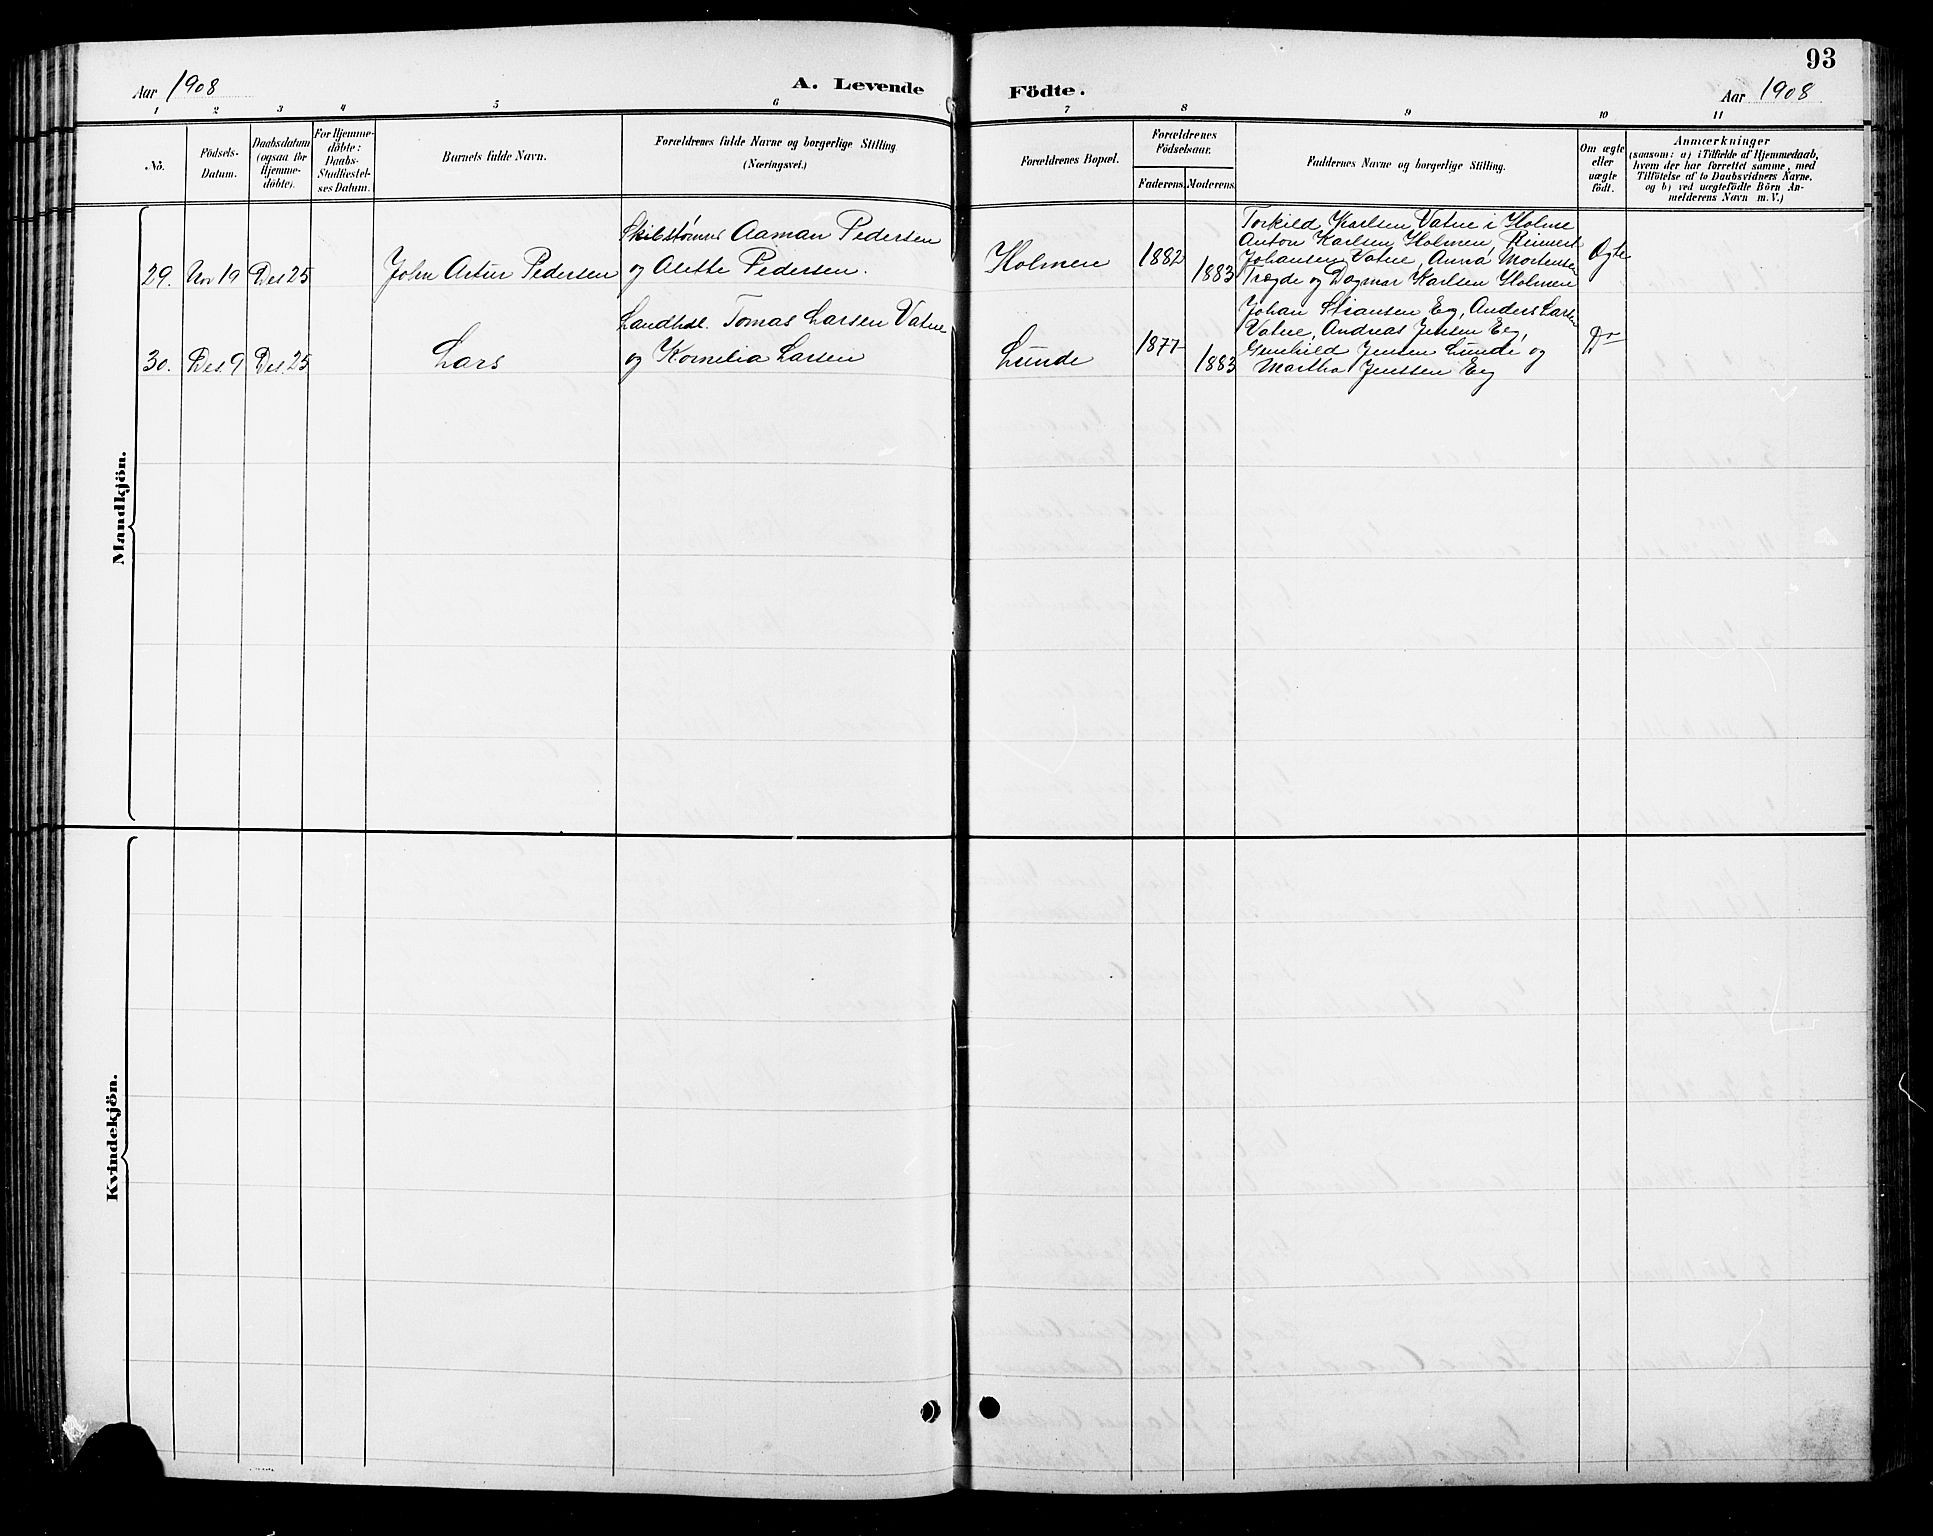 93
Aar 1908
A. Levende Födte.
Aar 1908
1 2 3 4 5 6 7 8 9 10 11
No.
Födsels-
Datum.
Daabsdatum
(ogsaa for
Hjemme-
døbte).
For Hjemme-
døbte:
Daabs-
Stadfæstel-
ses Datum.
Barnets fulde Navn.
Forældrenes fulde Navne og borgerlige Stilling.
(Næringsvei.)
Forældrenes Bopæl.
Forældrenes
Födselsaar.
Faderens.
Moderens.
Faddernes Navne og borgerlige Stilling.
Om ægte
eller
uægte
født.
Anmærkninger
(saasom: a) i Tilfælde af Hjemmedaab,
hvem der har forrettet samme, med
Tilføielse af to Daabsvidners Navne,
og b) ved uægtefødte Börn An-
melderens Navn m. V.)
Mandkjön.
29. Nov 19 Des 25 John Artur Pedersen
Aaman Pedersen
og Alette Pedersen.
Holmen 1882 1883
Torkild Karlsen Vatne i Holme
Anton Karlsen Holmen,
Johansen Vatne, Anna Mortensen
Trægde og Dagmar Karlsen Holmen
Ægte
30. Des. 9 Des. 25 Lars
Landhdl. Tomas Larsen Vatne
og Kornelia Larsen
Lunde 1877 1883
Johan Stiansen Eg, Anders Larsen
Vatne, Andreas Jensen Eg,
Gunhild Jensen Lunde og
Martha Jenssen Eg
Do
Kvindekjön.